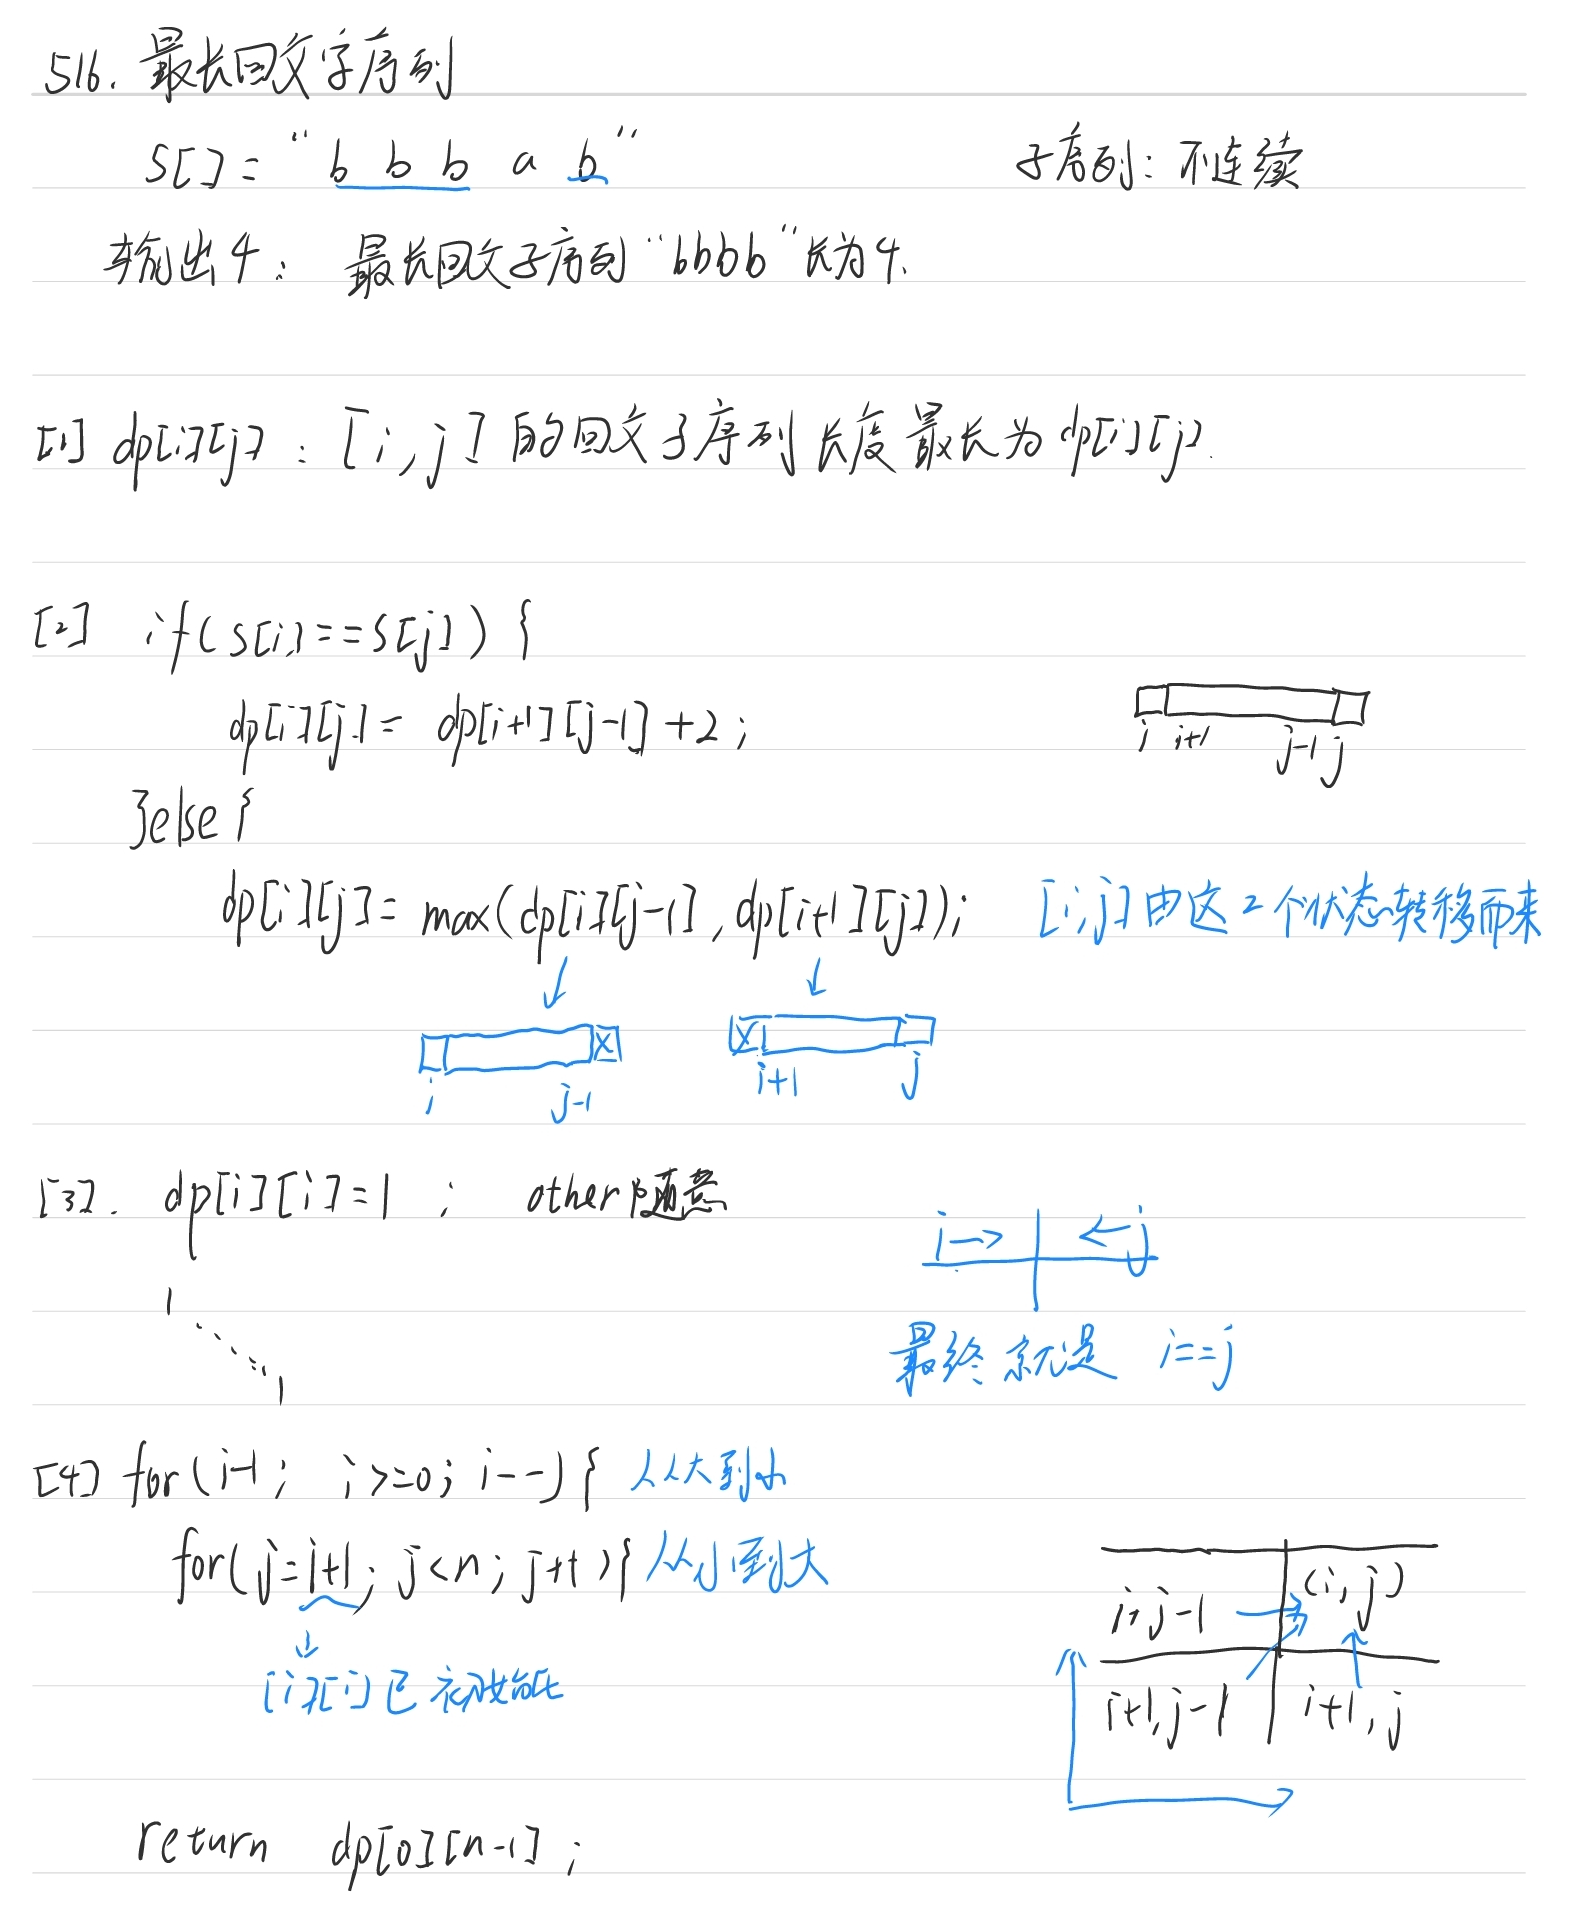 516. 最长回文字序列
S[] = "b b b a b" 子序列：不连续
输出4： 最长回文子序列"bbbb"长为4.
[1] dp[i][j] : [i, j] 的回文子序列长度最长为dp[i][j].
[2] if(s[i]==s[j]) {
dp[i][j] = dp[i+1][j-1] +2 ;
i i+1 j-1 j
}else{
dp[i][j] = max(dp[i][j-1], dp[i+1][j]); [i,j]由这2个状态转移而来
X X
i j-1 i+1 j
[3]. dp[i][i]=1 ; other随意
i→ ←j
1
最终就是 i==j
1
[4] for( ; i>=0; i--){ 从大到小
for(j=i+1; j<n; j++){ 从小到大
(i, j)
i, j-1
[i][i]已初始化
i+1, j-1 i+1, j
return dp[0][n-1] ;